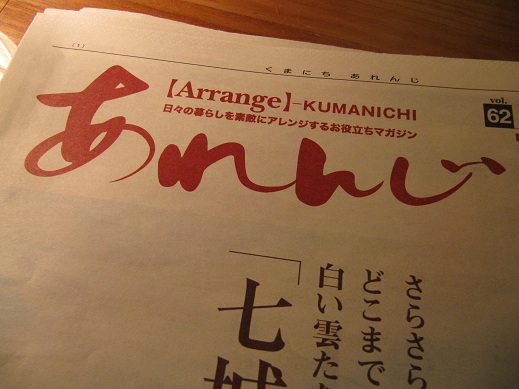 (1)
くまにち あれんじ
vol.
62
【Arrange】-KUMANICHI
日々の暮らしを素敵にアレンジするお役立ちマガジン
あれんじ
さらさら
どこまで
白い雲た
「七城